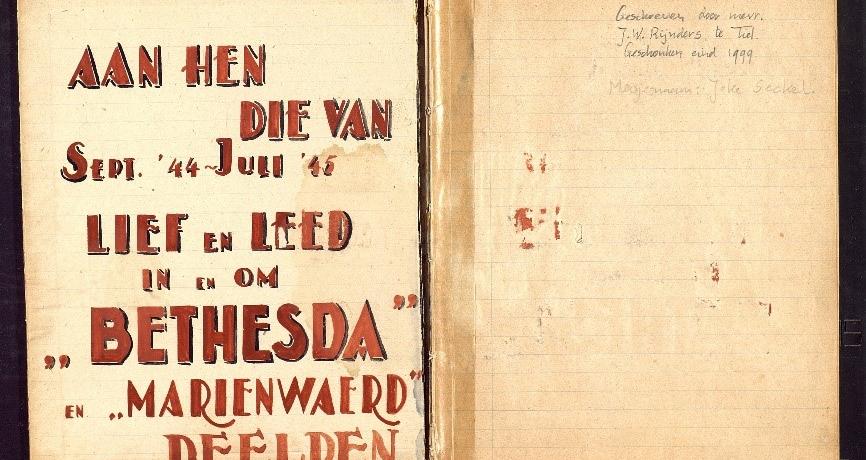 AAN HEN
DIE VAN
SEPT. '44~JULI '45
LIEF EN LEED
IN EN OM
„BETHESDA”
EN „MARIENWAERD”
DEELDEN
Geschreven door mevr.
J.W. Rijnders te Tiel.
Geschonken eind 1999
Meisjesnaam: Joke Seckel.